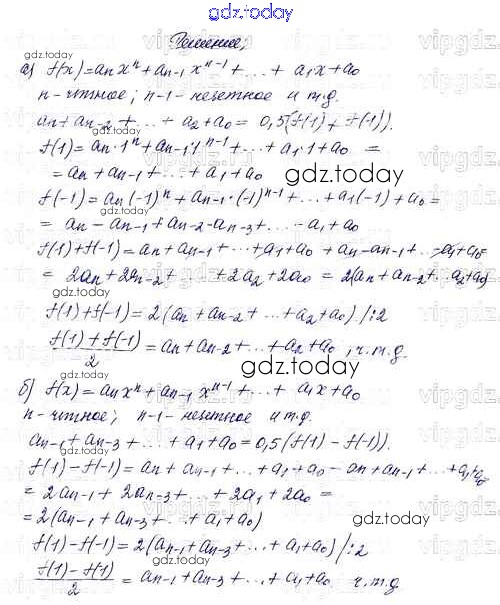 gdz.today
Решение,
а) f(x)=aₙxⁿ+aₙ₋₁xⁿ⁻¹+...+a₁x+a₀
n-чтное; n-1-нечетное и т.д.
aₙ+aₙ₋₂+...+a₂+a₀= 0,5(f(1)+f(-1)).
f(1)=aₙ·1ⁿ+aₙ₋₁·1ⁿ⁻¹+...+a₁·1+a₀ =
=aₙ+aₙ₋₁+...+a₁+a₀
f(-1)=aₙ(-1)ⁿ+aₙ₋₁·(-1)ⁿ⁻¹+...+a₁(-1)+a₀=
= aₙ-aₙ₋₁+aₙ₋₂-aₙ₋₃+...-a₁+a₀
f(1)+f(-1)=aₙ+aₙ₋₁+...+a₁+a₀+aₙ-aₙ₋₁+...-a₁+a₀=
= 2aₙ+2aₙ₋₂+...+2a₂+2a₀=2(aₙ+aₙ₋₂+...a₂+a₀)
f(1)+f(-1)=2(aₙ+aₙ₋₂+...+a₂+a₀) /:2
(f(1)+f(-1))/2=aₙ+aₙ₋₂+...+a₂+a₀, ч.т.д.
б) f(x)=aₙxⁿ+aₙ₋₁xⁿ⁻¹+...+a₁x+a₀
n-чтное; n-1-нечетное и т.д.
aₙ₋₁+aₙ₋₃+...+a₁+a₀=0,5(f(1)-f(-1)).
f(1)-f(-1)=aₙ+aₙ₋₁+...+a₁+a₀-aₙ+aₙ₋₁+...+a₁+a₀
= 2aₙ₋₁+2aₙ₋₃+...+2a₁+2a₀=
=2(aₙ₋₁+aₙ₋₃+...+a₁+a₀)
f(1)-f(-1)=2(aₙ₋₁+aₙ₋₃+...+a₁+a₀)/:2
(f(1)-f(1))/2=aₙ₋₁+aₙ₋₃+...+a₁+a₀, ч.т.д.
gdz.today